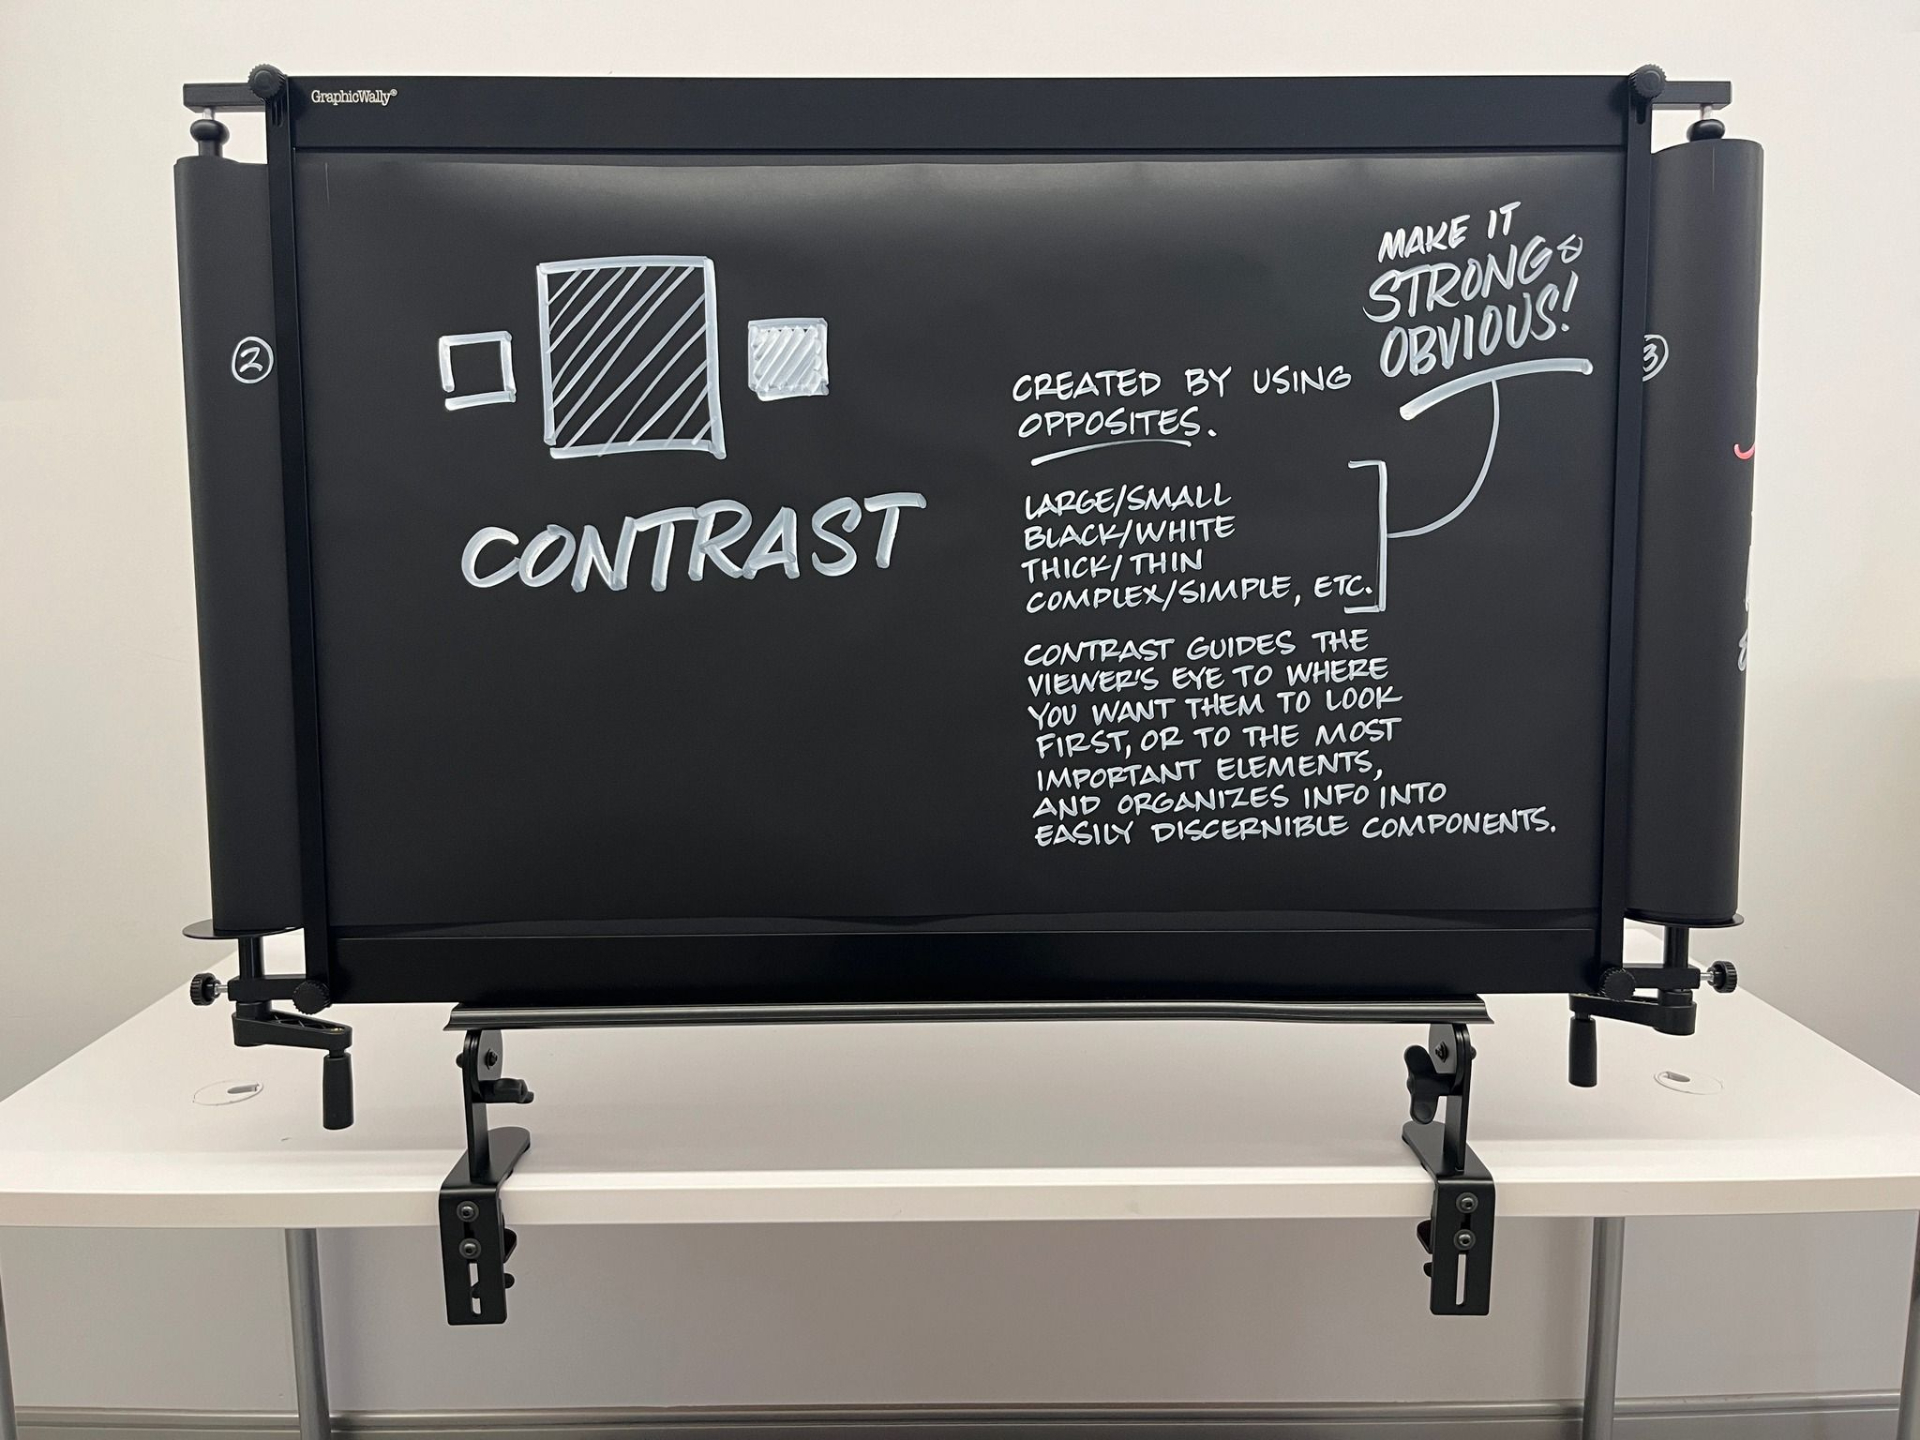 GraphicWally®
2
CONTRAST
MAKE IT
STRONG &
OBVIOUS!
CREATED BY USING
OPPOSITES.
LARGE/SMALL
BLACK/WHITE
THICK/THIN
COMPLEX/SIMPLE, ETC.
CONTRAST GUIDES THE
VIEWER'S EYE TO WHERE
YOU WANT THEM TO LOOK
FIRST, OR TO THE MOST
IMPORTANT ELEMENTS,
AND ORGANIZES INFO INTO
EASILY DISCERNIBLE COMPONENTS.
3